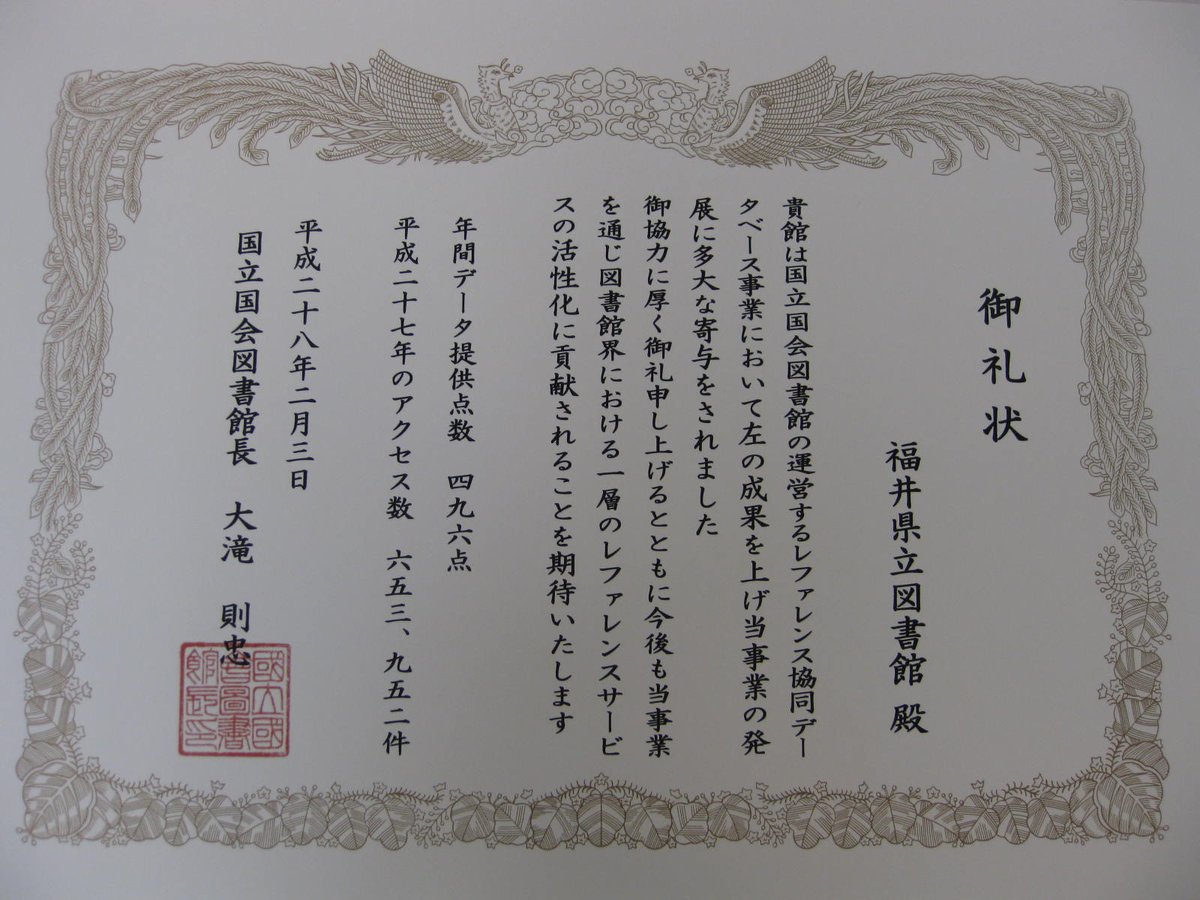 御礼状
福井県立図書館 殿
貴館は国立国会図書館の運営するレファレンス協同デー
タベース事業において左の成果を上げ当事業の発
展に多大な寄与をされました
御協力に厚く御礼申し上げるとともに今後も当事業
を通じ図書館界における一層のレファレンスサービ
スの活性化に貢献されることを期待いたします
年間データ提供点数 四九六点
平成二十七年のアクセス数 六五三、九五二件
平成二十八年二月三日
国立国会図書館長 大滝 則忠
國立國
會圖書
館長印